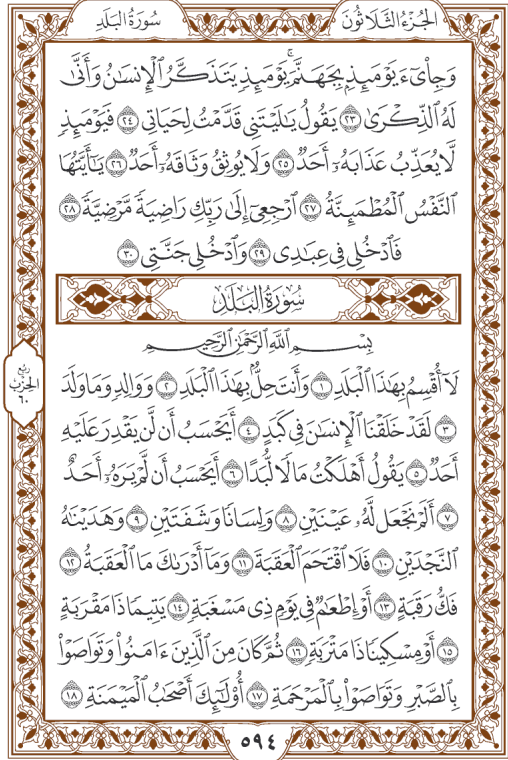 سُورَةُ البَلَدِ
الجُزْءُ الثَّلَاثُونَ
وَجِا۟ىٓءَ يَوْمَئِذٍۭ بِجَهَنَّمَ ۚ يَوْمَئِذٍ يَتَذَكَّرُ ٱلْإِنسَٰنُ وَأَنَّىٰ
لَهُ ٱلذِّكْرَىٰ ٢٣ يَقُولُ يَٰلَيْتَنِى قَدَّمْتُ لِحَيَاتِى ٢٤ فَيَوْمَئِذٍ
لَّا يُعَذِّبُ عَذَابَهُۥٓ أَحَدٌ ٢٥ وَلَا يُوثِقُ وَثَاقَهُۥٓ أَحَدٌ ٢٦ يَٰٓأَيَّتُهَا
ٱلنَّفْسُ ٱلْمُطْمَئِنَّةُ ٢٧ ٱرْجِعِىٓ إِلَىٰ رَبِّكِ رَاضِيَةً مَّرْضِيَّةً ٢٨
فَٱدْخُلِى فِى عِبَٰدِى ٢٩ وَٱدْخُلِى جَنَّتِى ٣٠
سُورَةُ البَلَدِ
بِسْمِ ٱللَّهِ ٱلرَّحْمَٰنِ ٱلرَّحِيمِ
لَآ أُقْسِمُ بِهَٰذَا ٱلْبَلَدِ ١ وَأَنتَ حِلٌّۢ بِهَٰذَا ٱلْبَلَدِ ٢ وَوَالِدٍ وَمَا وَلَدَ
٣ لَقَدْ خَلَقْنَا ٱلْإِنسَٰنَ فِى كَبَدٍ ٤ أَيَحْسَبُ أَن لَّن يَقْدِرَ عَلَيْهِ
أَحَدٌ ٥ يَقُولُ أَهْلَكْتُ مَالًا لُّبَدًا ٦ أَيَحْسَبُ أَن لَّمْ يَرَهُۥٓ أَحَدٌ
٧ أَلَمْ نَجْعَل لَّهُۥ عَيْنَيْنِ ٨ وَلِسَانًا وَشَفَتَيْنِ ٩ وَهَدَيْنَٰهُ
ٱلنَّجْدَيْنِ ١٠ فَلَا ٱقْتَحَمَ ٱلْعَقَبَةَ ١١ وَمَآ أَدْرَىٰكَ مَا ٱلْعَقَبَةُ ١٢
فَكُّ رَقَبَةٍ ١٣ أَوْ إِطْعَٰمٌ فِى يَوْمٍ ذِى مَسْغَبَةٍ ١٤ يَتِيمًا ذَا مَقْرَبَةٍ
١٥ أَوْ مِسْكِينًا ذَا مَتْرَبَةٍ ١٦ ثُمَّ كَانَ مِنَ ٱلَّذِينَ ءَامَنُوا۟ وَتَوَاصَوْا۟
بِٱلصَّبْرِ وَتَوَاصَوْا۟ بِٱلْمَرْحَمَةِ ١٧ أُو۟لَٰٓئِكَ أَصْحَٰبُ ٱلْمَيْمَنَةِ ١٨
ربع
الحِزْب
٦٠
٥٩٤